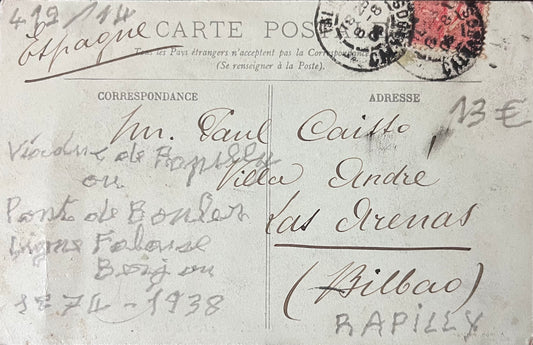 412/114
Espagne
CARTE POS
Tous les Pays étrangers n'acceptent pas la Correspondance
(Se renseigner à la Poste).
CORRESPONDANCE
ADRESSE
13 €
Mr. Paul
Villa André
Las Arenas
(Bilbao)
Viaduc de Rapilly
ou
Pont de Boulet
Ligne Falaise
Berjou
1874-1938
RAPILLY